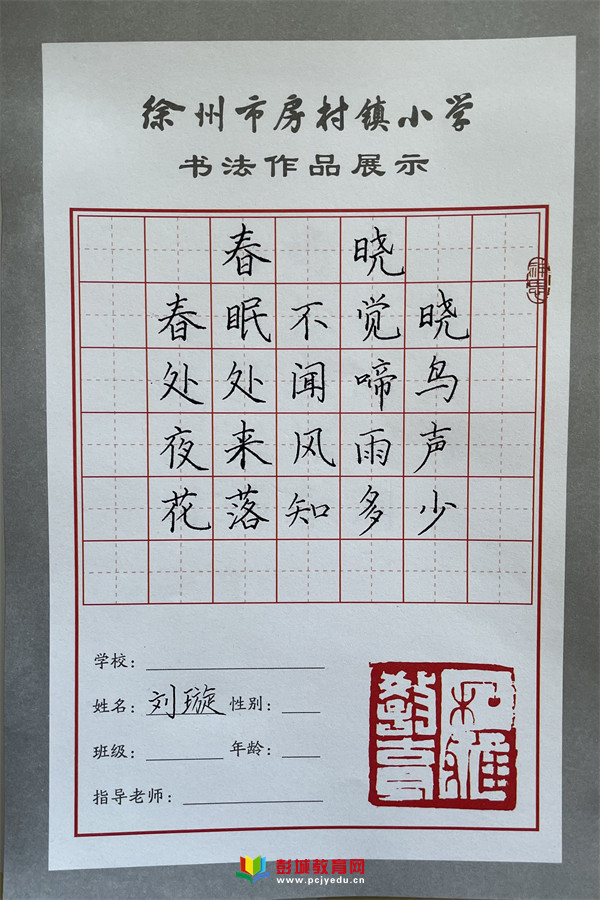 徐州市房村镇小学
书法作品展示
春晓
春眠不觉晓
处处闻啼鸟
夜来风雨声
花落知多少
学校：
姓名：刘璇 性别：
班级： 年龄：
指导老师：
彭城教育网
www.pcjyedu.cn